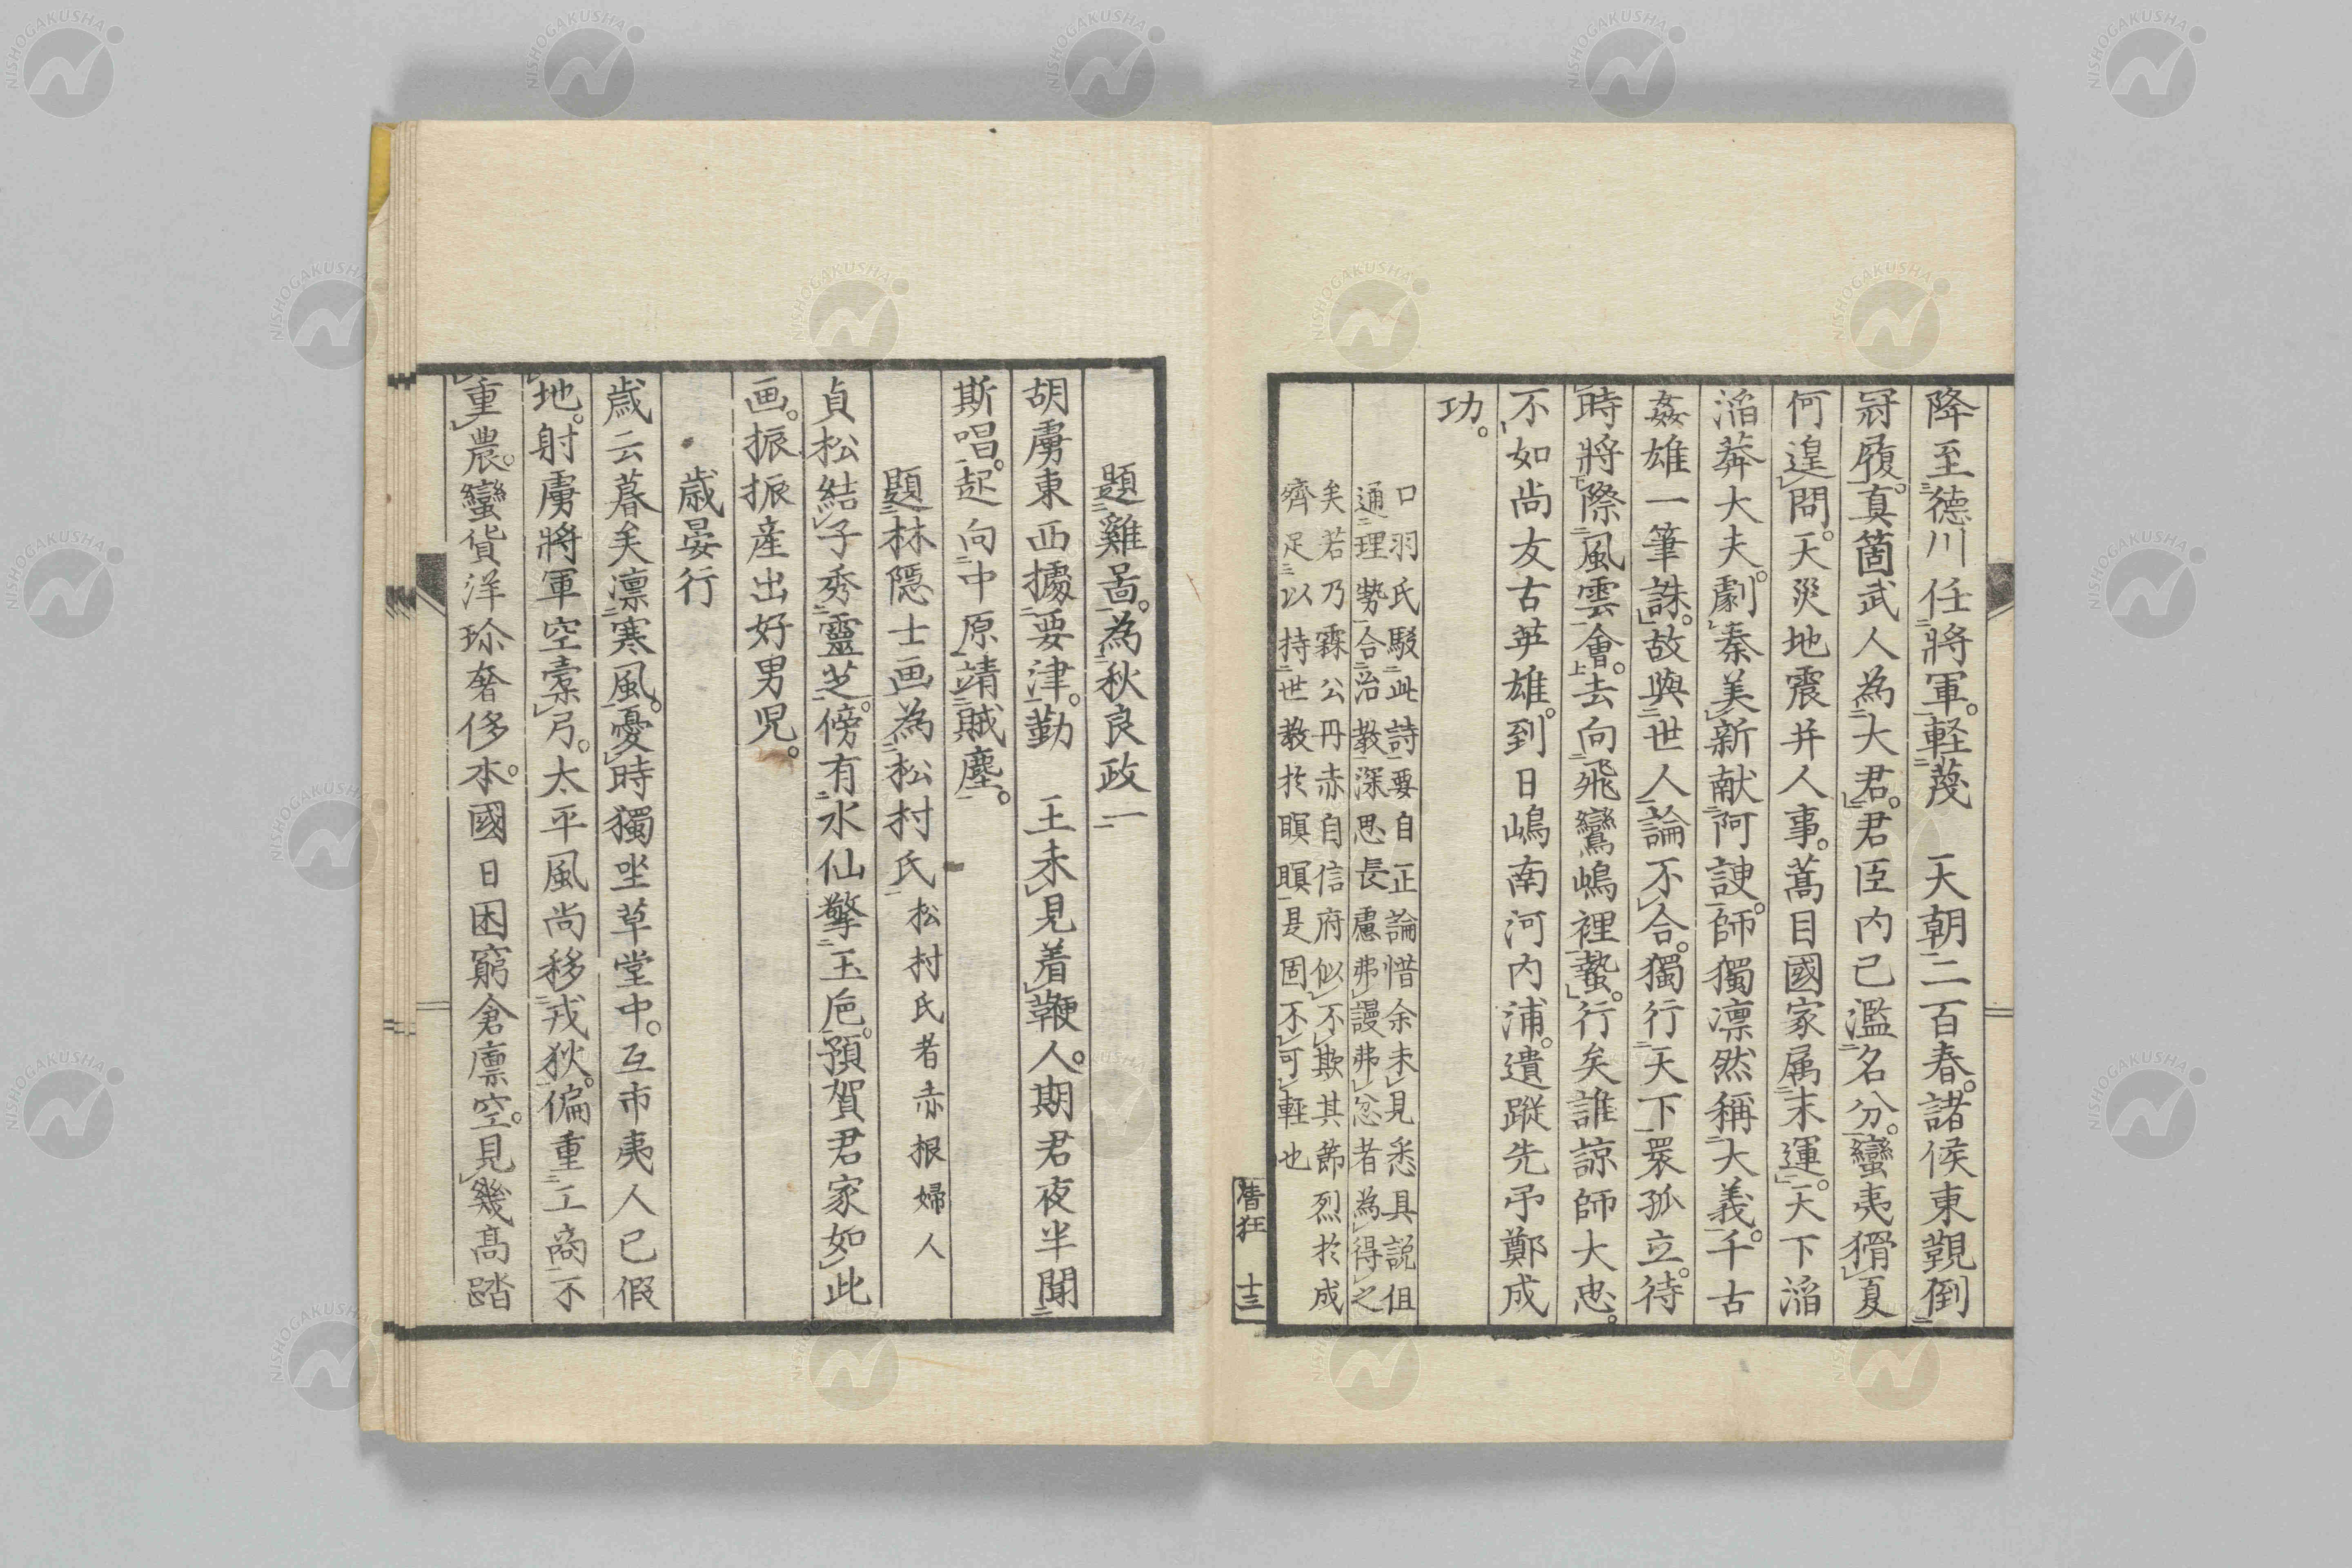 降至德川任將軍。軽蔑　天朝二百春。諸侯東覲倒
冠履。真箇武人為大君。君臣内已濫名分。蠻夷猾夏
何遑問。天災地震并人事。蒿目國家属末運。天下滔
滔莽大夫。劇秦美新献阿諛。師獨凛然稱大義。千古
姦雄一筆誅。故與世人論不合。獨行天下衆孤立。待
時將際風雲會。去向飛鸞嶋裡蟄。行矣誰諒師大忠。
不如尚友古英雄。到日嶋南河内浦。遺蹤先弔鄭成
功。
口羽氏駁此詩要自正論惜余未見悉具説但
通理勢合治教深思長慮弗謾弗忿者為得之
矣若乃霖公丹赤自信府似不欺其節烈於成
濟足以持世教於暝暝是固不可軽也
暦狂　十三
題雞啚。為秋良政一
胡虜東西據要津。勤　王未見着鞭人。期君夜半聞
斯唱。起向中原靖賊塵。
題林隠士画為松村氏 松村氏者赤根婦人
貞松結子秀靈芝。傍有水仙擎玉巵。預賀君家如此
画。振振産出好男児。
歳晏行
歳云暮矣凛寒風。憂時獨坐草堂中。互市夷人已假
地。射虜將軍空櫜弓。太平風尚移戎狄。偏重工商不
重農。蠻貨洋珎奢侈本。國日困窮倉廪空。見幾高踏
NISHOGAKUSHA